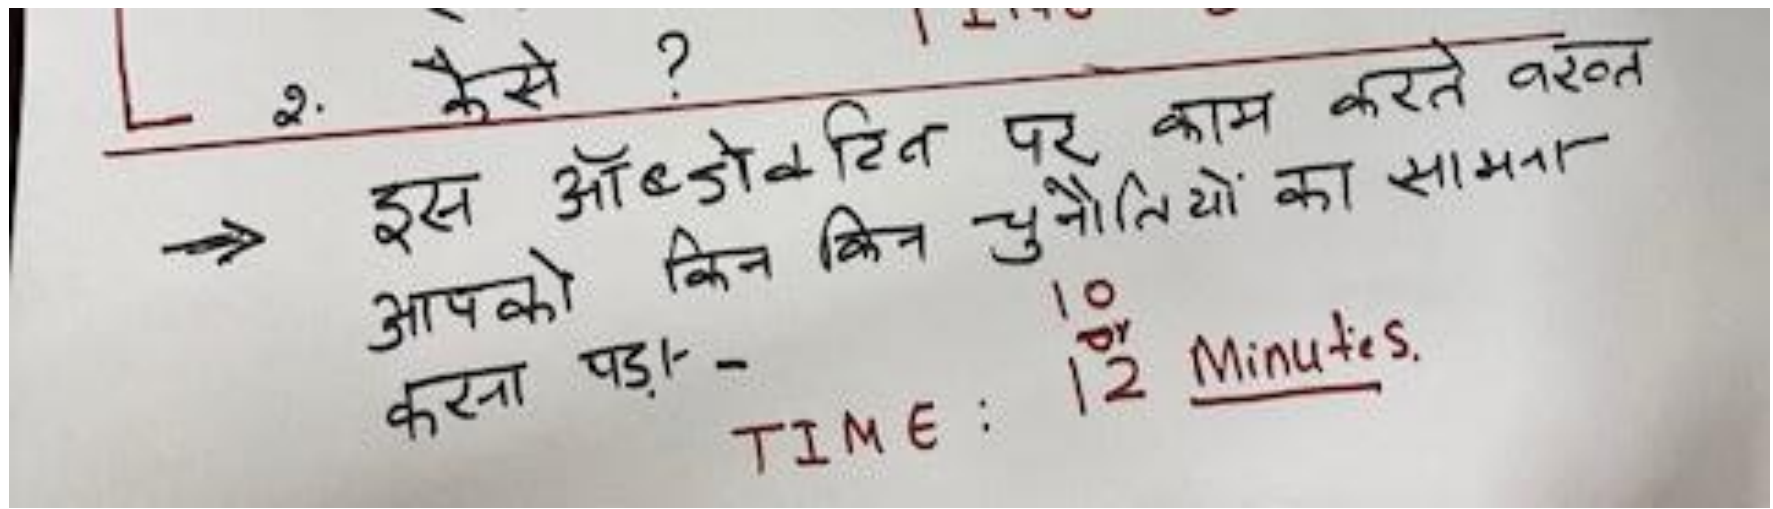 २. कैसे ?
→ इस ऑब्जेक्टिव पर काम करते वख्त
आपको किन किन चुनौतियों का सामना
करना पड़ा -
10
or
TIME : 12 Minutes.